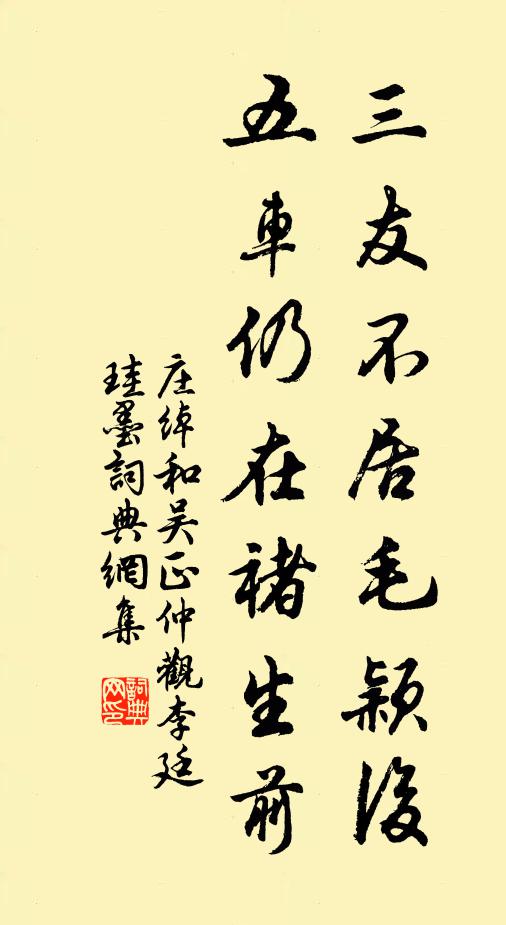 三友不居毛颖後
五車仍在褚生前
庄绰和吴正仲觀李廷
珪墨詞典網集
詞典
网印